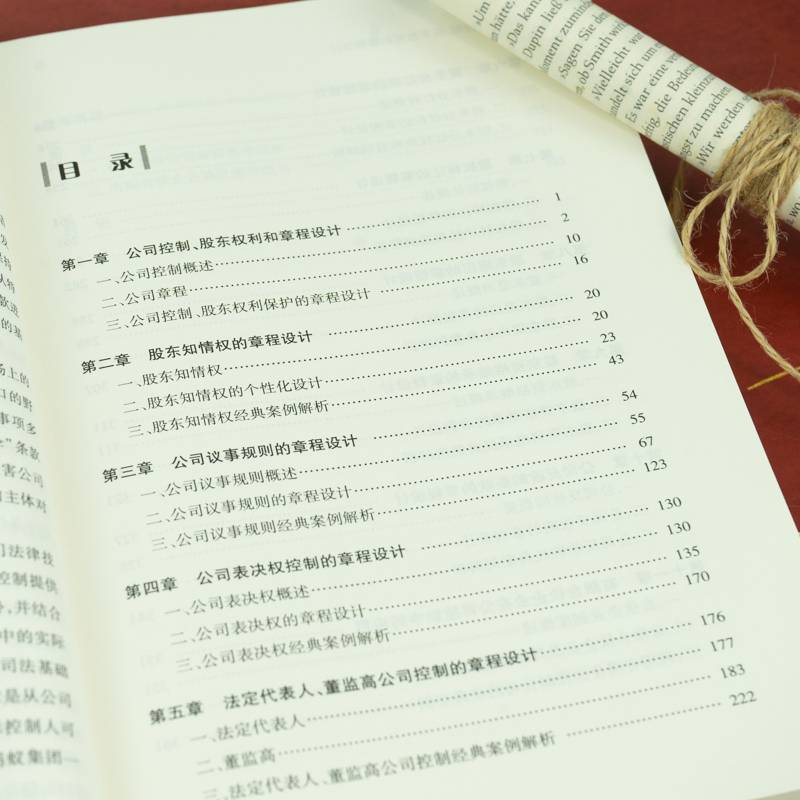 目 录
第一章 公司控制、股东权利和章程设计 1
一、公司控制概述 2
二、公司章程 10
三、公司控制、股东权利保护的章程设计 16
第二章 股东知情权的章程设计 20
一、股东知情权 20
二、股东知情权的个性化设计 23
三、股东知情权经典案例解析 43
第三章 公司议事规则的章程设计 54
一、公司议事规则概述 55
二、公司议事规则的章程设计 67
三、公司议事规则经典案例解析 123
第四章 公司表决权控制的章程设计 130
一、公司表决权概述 130
二、公司表决权的章程设计 135
三、公司表决权经典案例解析 170
第五章 法定代表人、董监高公司控制的章程设计 176
一、法定代表人 177
二、董监高 183
三、法定代表人、董监高公司控制经典案例解析 222
的基
场上的
口的野
事项多
”条款
害公司
主体对
司法律技
控制提供
,并结合
中的实际
司法基础
是从公司
控制人可
蚂蚁集团一
»Um
hätte,
»Das kan
Dupin ließ
oment zumind
»Sagen Sie de
ob Smith wirk
»Vielleicht war
ndelt sich um e
Es war eine ve
die Bedeu
tischen kleinza
ngst zu machen
»Wir werden s